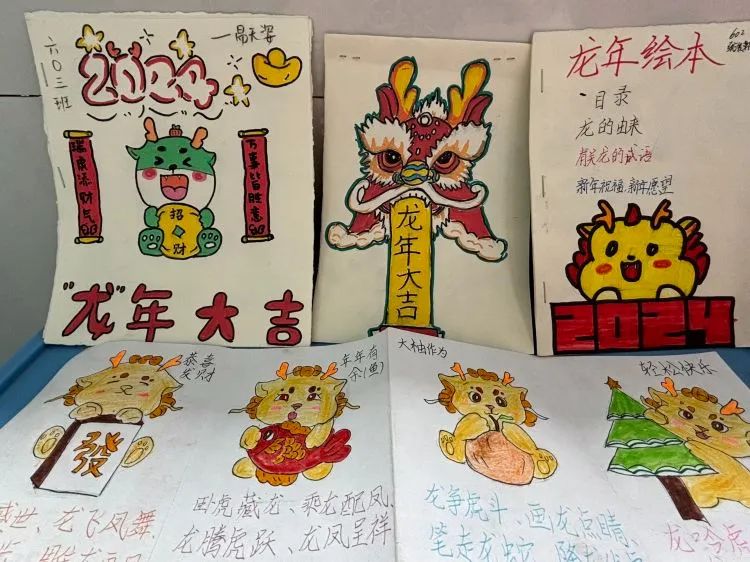 六〇三班
2024
瑞气添财气
万事皆胜意
招
财
"龙"年大吉
龙年大吉
602
龙年绘本
·目录
龙的由来
有关龙的成语
新年祝福、新年愿望
2024
恭喜
发财
發
盛世、龙飞凤舞
年年有
余(鱼)
卧虎藏龙、乘龙配凤、
龙腾虎跃、龙凤呈祥
大柚作为
龙争虎斗、画龙点睛、
笔走龙蛇、
轻松快乐
龙吟虎